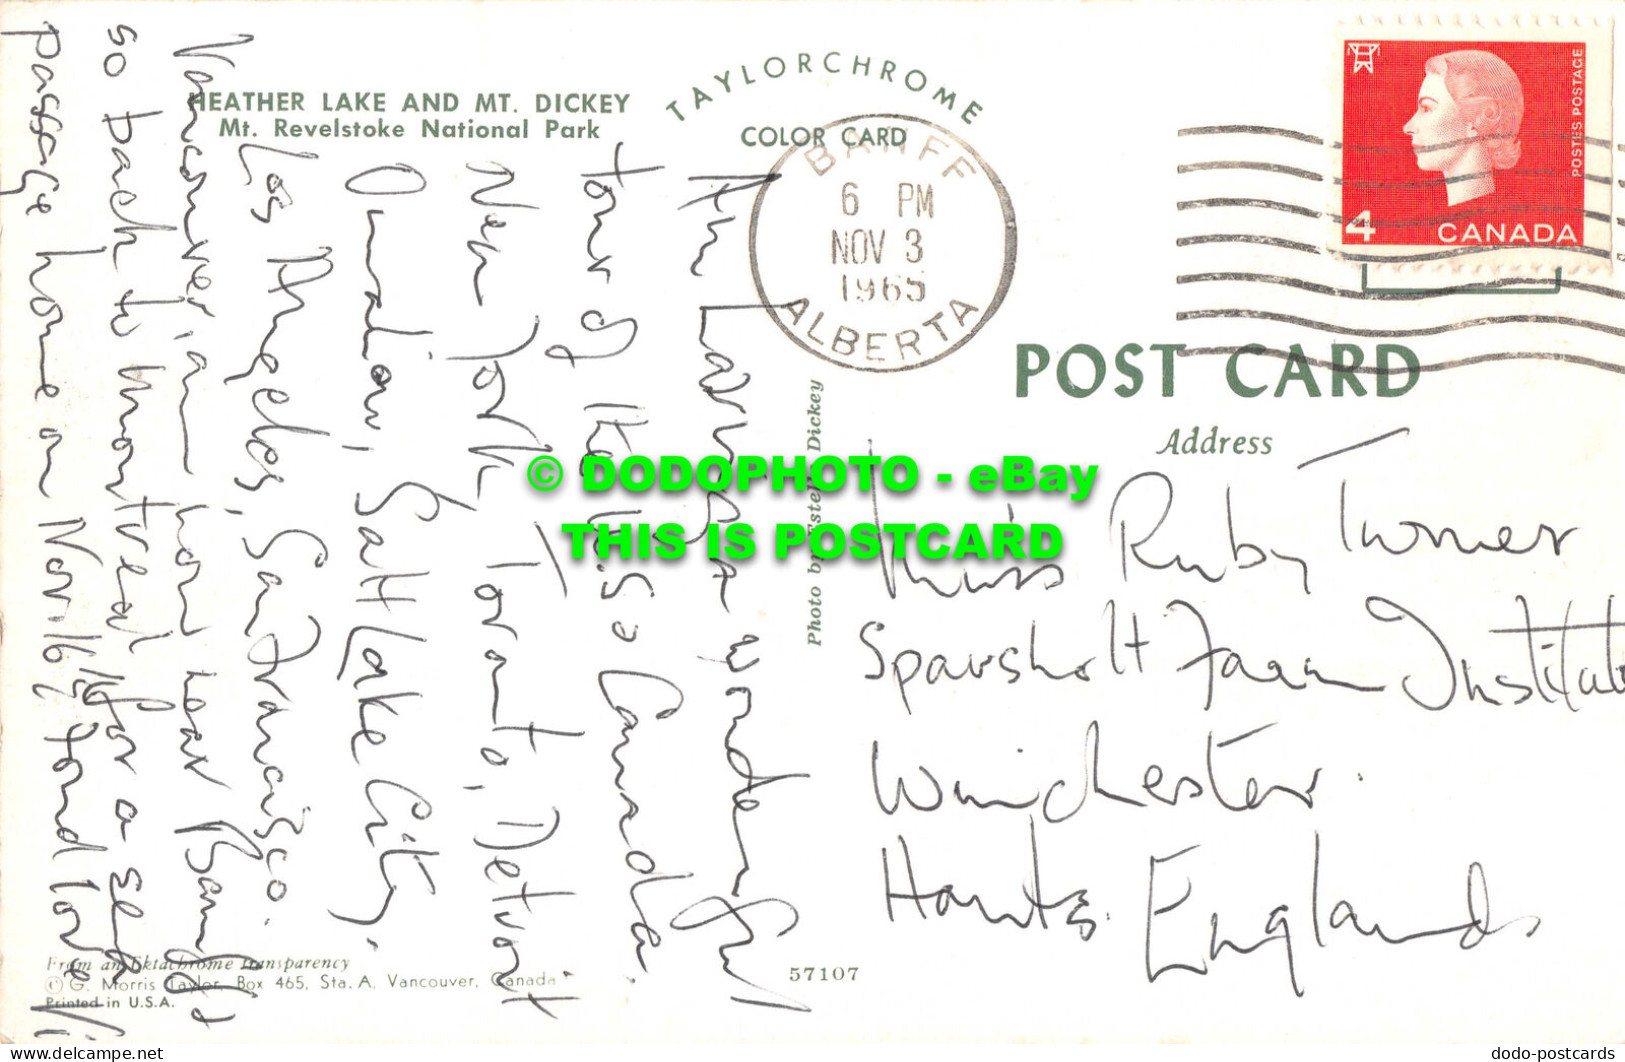 HEATHER LAKE AND MT. DICKEY
Mt. Revelstoke National Park
TAYLORCHROME
COLOR CARD
BANFF
6 PM
NOV 3
1965
ALBERTA
4
CANADA
POSTES POSTAGE
POST CARD
Address
Miss Ruby Turner
Sparsholt Farm Institute
Winchester.
Hants. England
Am having a wonderful
tour of the U.S. & Canada.
New York, Toronto, Detroit
Omaha, Salt Lake City,
Los Angeles, San Francisco.
Vancouver, am now near Banff &
so back to Montreal for a sea
passage home on Nov. 16th. Fond love
Photo by Estelle Dickey
© DODOPHOTO - eBay
THIS IS POSTCARD
From an Ektachrome transparency
© G. Morris Taylor, Box 465, Sta. A, Vancouver, Canada
Printed in U.S.A.
57107
dodo-postcards
delcampe.net